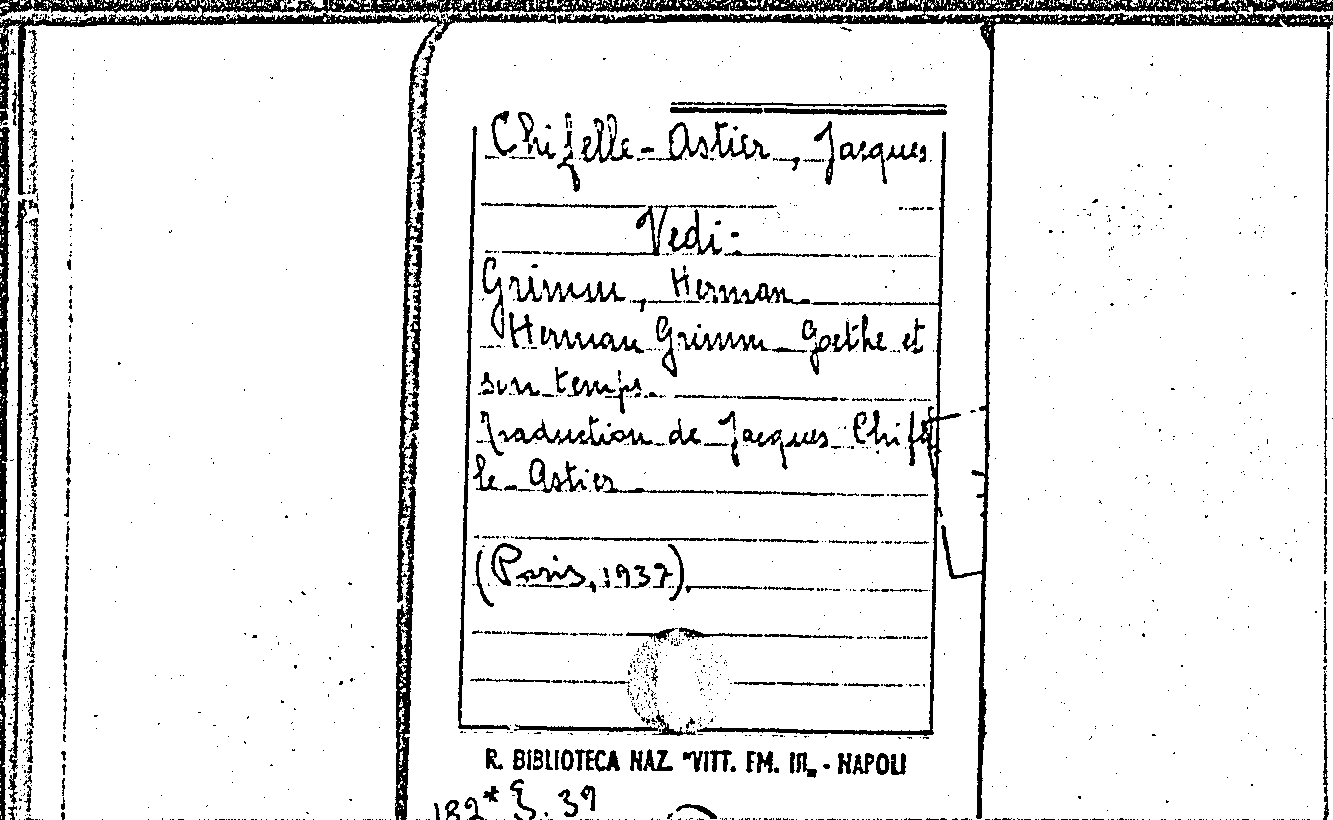 Chifelle - Astier, Jacques
Vedi:
Grimm, Herman.
Herman Grimm Goethe et
son temps.
Traduction de Jacques Chifel
le Astier
(Paris, 1937).
R. BIBLIOTECA NAZ. "VITT. EM. III„ - NAPOLI
39